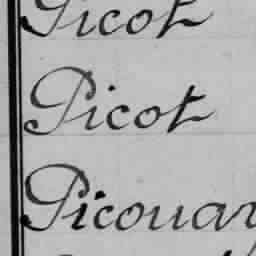 Picot
Picot
Picouay